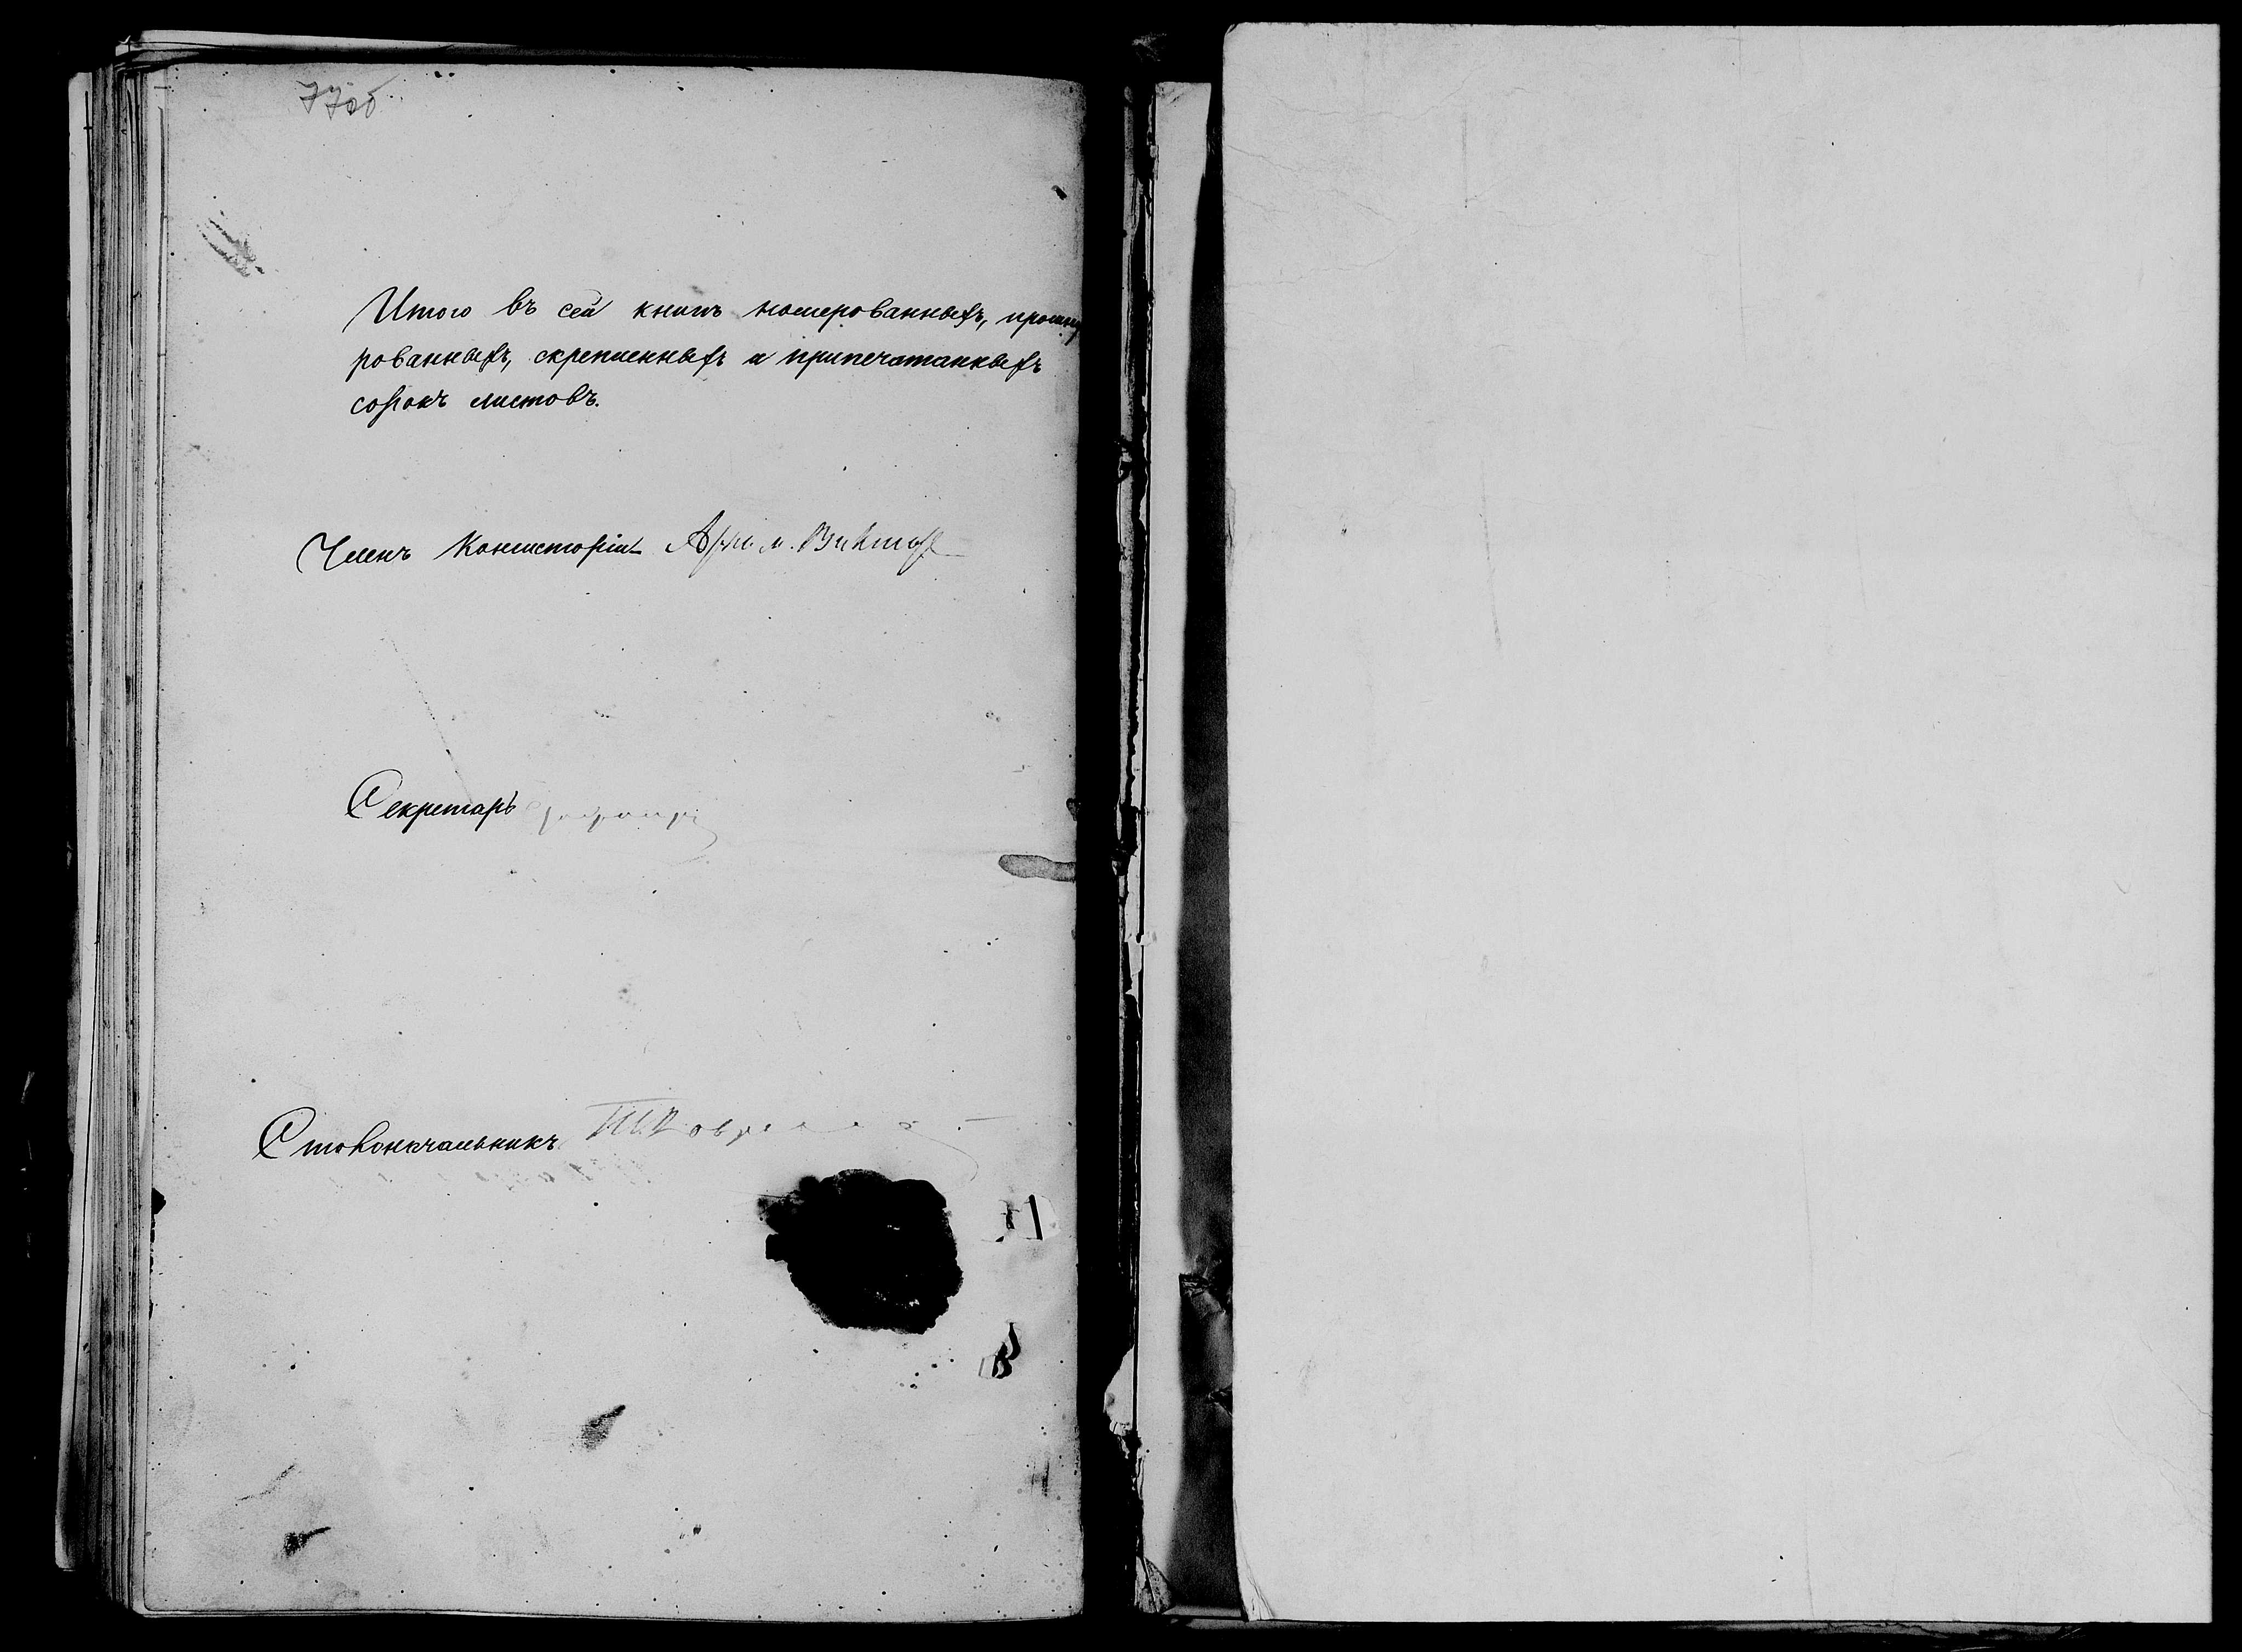 77об
Итого въ сей книгѣ номерованныхъ, прошну
рованныхъ, скрепленныхъ и припечатанныхъ
сорокъ листовъ.
Членъ Консисторіи Архим. Викторъ
Секретарь
Столоначальникъ